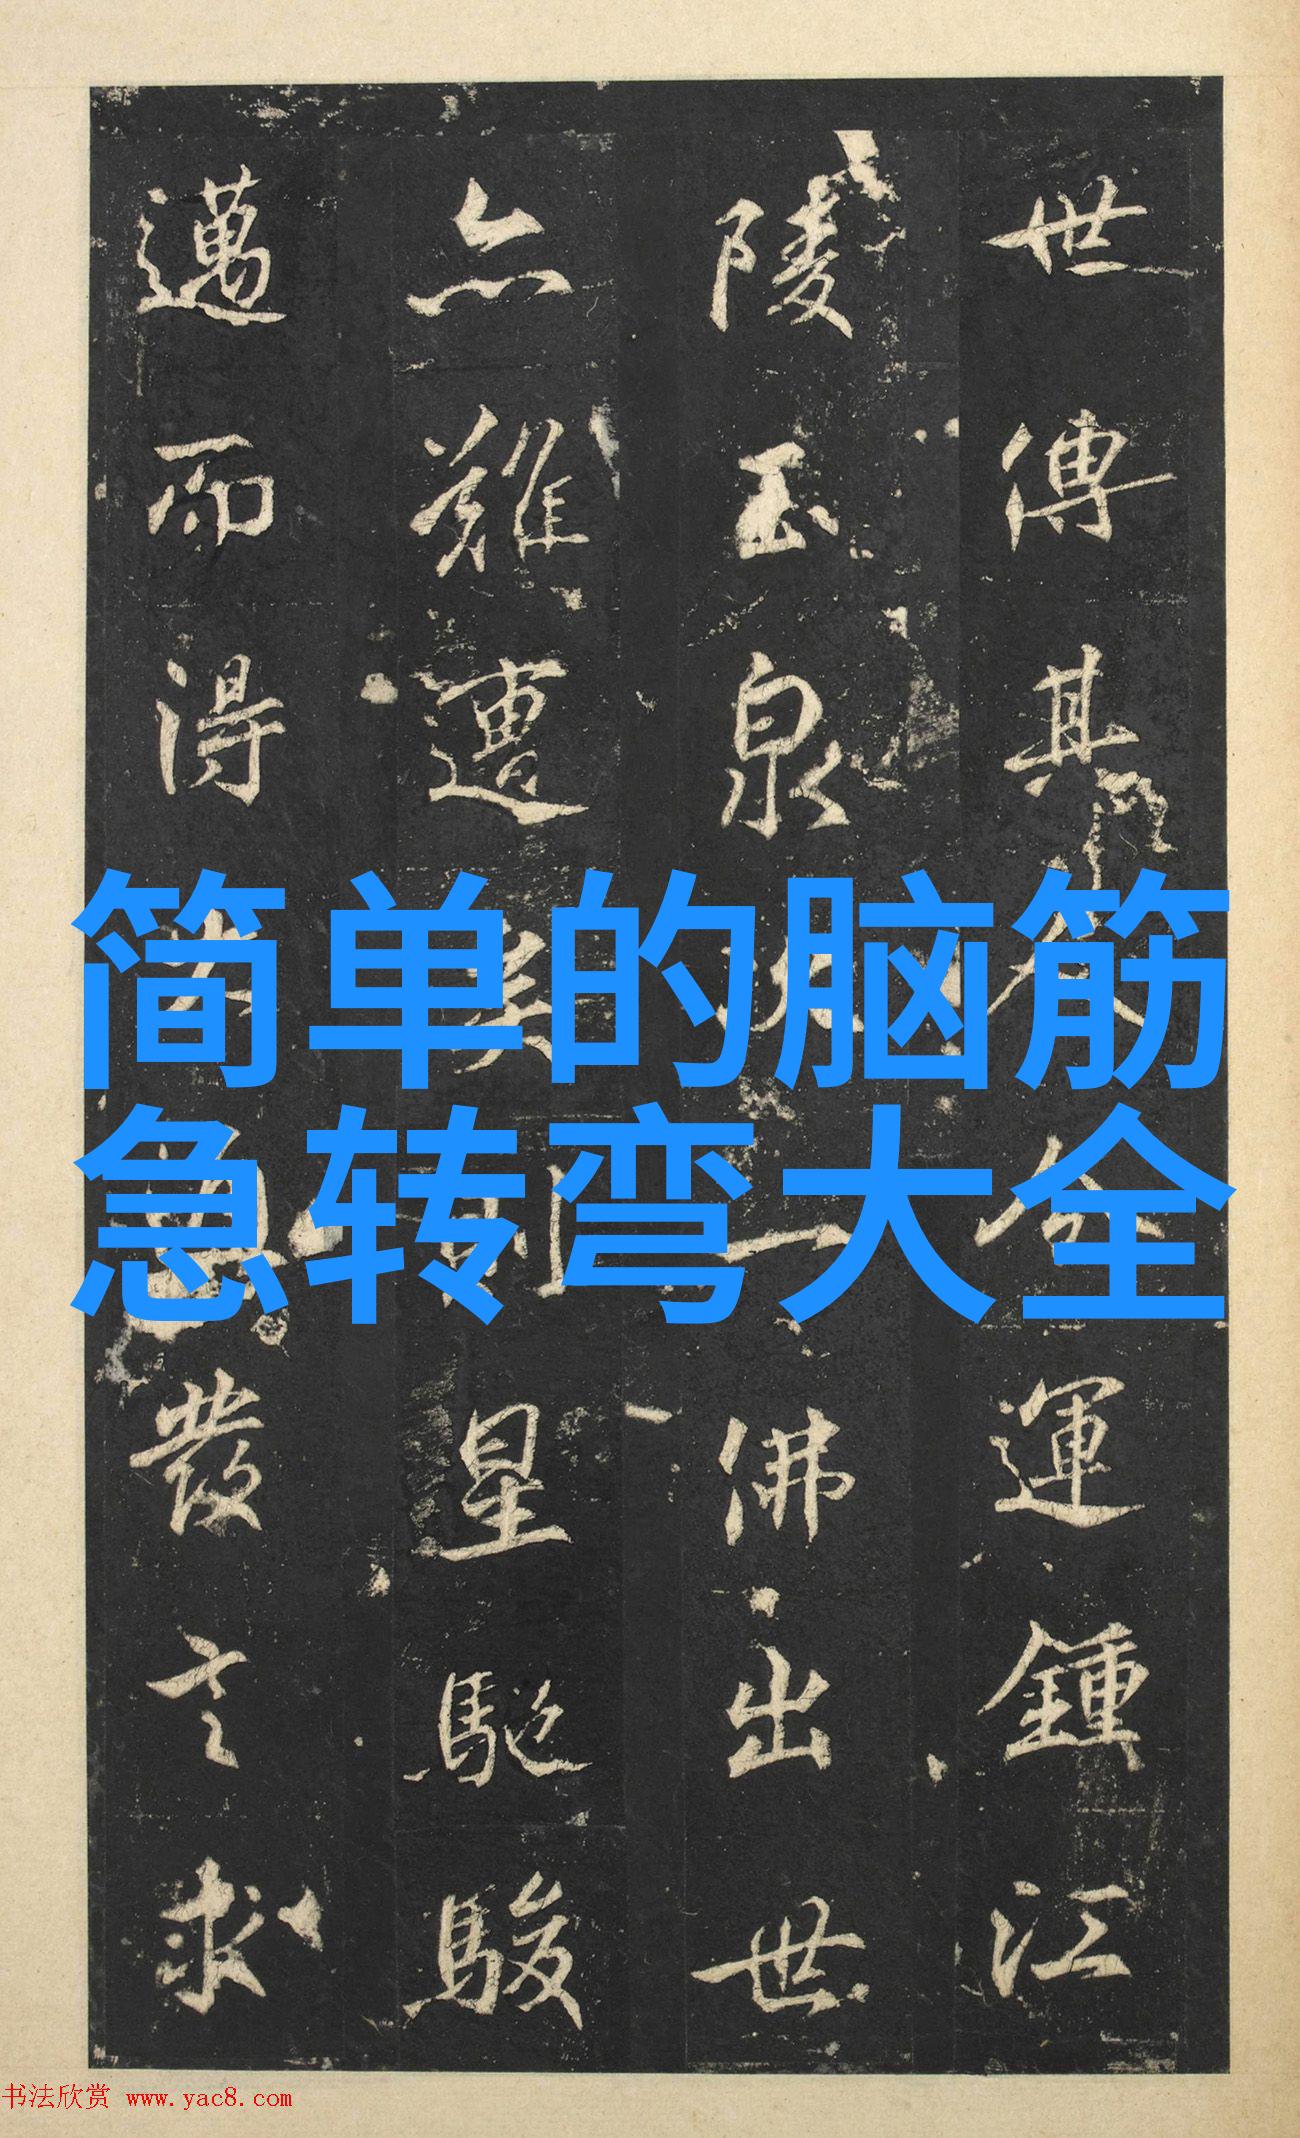 世傳其運鍾江
陵玉泉一佛出世
亦難遭矣星馳駿
邁而得發言求
简单的脑筋
急转弯大全
书法欣赏 www.yac8.com